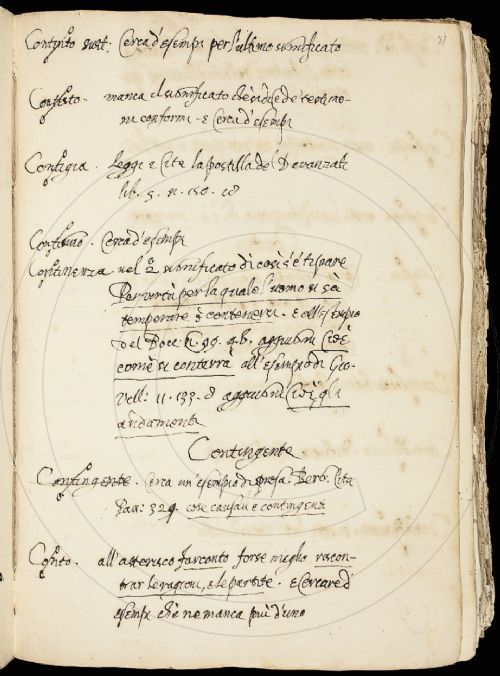 81
Contento sust: Cerca d'esempi per l'ultimo significato
Contesto. manca il significato che si dice de' testimo-
ni conformi. e Cerca d'esempi
Contigia. Leggi e Cita la postilla del Davanzati
lib. 5. n. 150. 18
Continuo. Cerca d'esempi
Continenza nel 2º significato di così s'è ti pare
Per virtù per la quale l'uomo si sà
temperare ò contenersi. e all'esempio
del Bocc: n. 99. 9.b. aggiugni Cioè
come si conterrà all'esempio di Gio.
Vill: 11. 133. 8 aggiugni Cioè gli
andamenti
Contingente
Contingente. Cerca un'esempio di prosa. Berb. Cita
Pass: 329 cose causali e contingenti
Conto. all'asterisco far conto forse meglio racon-
trar le ragioni, e le partite. e Cercare d'
esempi che ne manca più d'uno